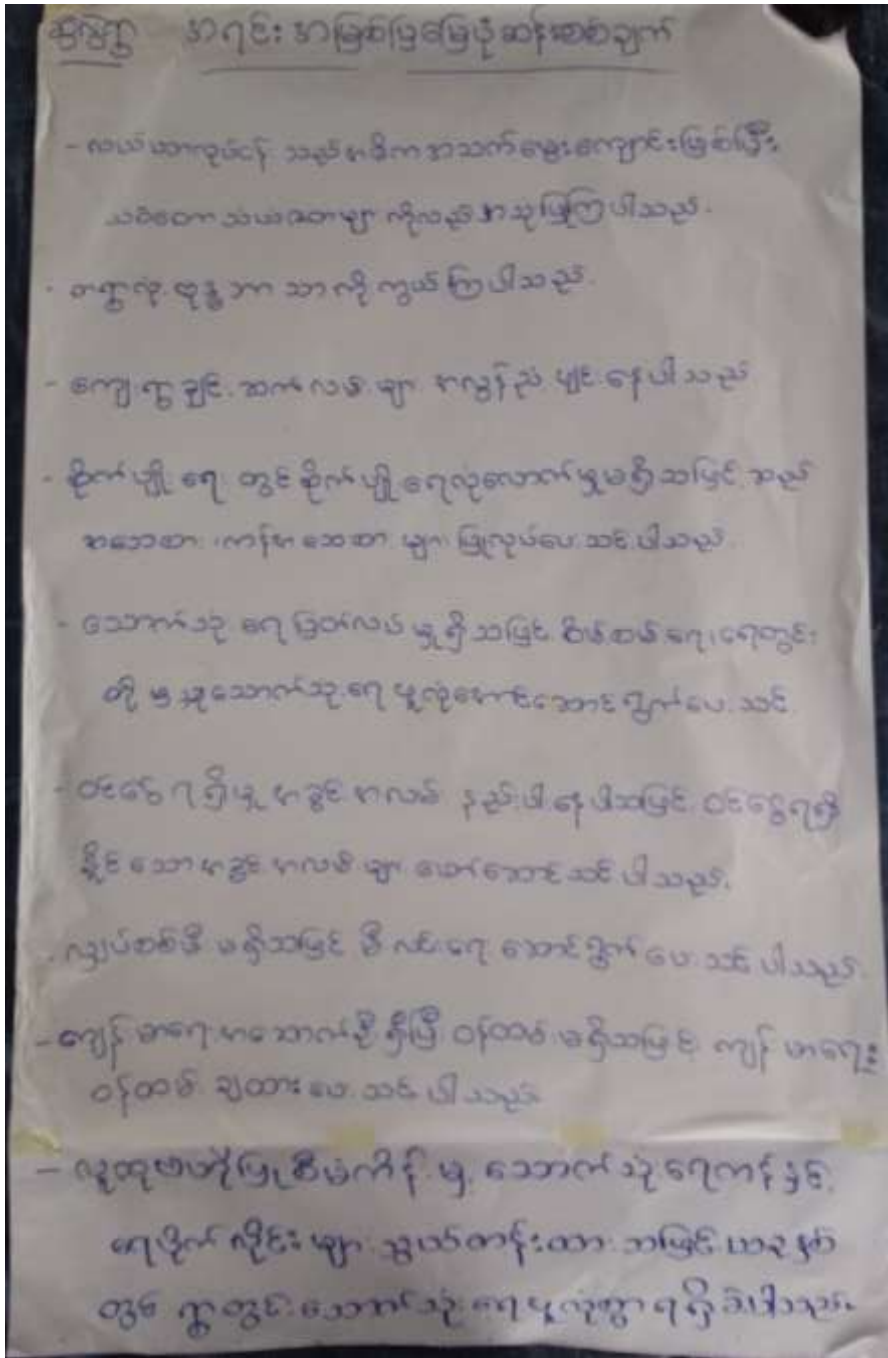 ဆွဲလွဲရွာ အရင်းအမြစ်ပြမြေပုံဆန်းစစ်ချက်
- လယ်ယာလုပ်ငန်း သည် အဓိကအသက်မွေးကျောင်းဖြစ်ပြီး
သစ်တော သယံဇာတများ ကိုလည်း အသုံးပြုကြပါသည်.
- တရွာလုံး ဗုဒ္ဓဘာသာကို ကွယ်ကြပါသည်.
- ကျေးရွာချင်းဆက်လမ်းများ အလွန်ညံ့ဖျင်းနေပါသည်
- စိုက်ပျိုးရေး တွင် စိုက်ပျိုးရေလုံလောက်မှုမရှိသဖြင့် ဆည်
တို့မှ သောက်သုံးရေ ဖူလုံအောင်ဆောင်ရွက်ပေးသင့်
- သောက်သုံးရေပြတ်လပ်မှုရှိသဖြင့် စိမ့်စမ်းရေ၊ ရေတွင်း
- ဝင်ငွေရရှိမှု အခွင့်အလမ်း နည်းပါးနေပါသဖြင့် ဝင်ငွေရရှိ
နိုင်သောအခွင့်အလမ်းများ ဖော်ဆောင်သင့်ပါသည်.
- လျှပ်စစ်မီး မရှိသဖြင့် မီးလင်းရေး ဆောင်ရွက်ပေးသင့်ပါသည်.
- ကျန်းမာရေးအဆောက်အဦးရှိပြီး ဝန်ထမ်းမရှိသဖြင့် ကျန်းမာရေး
ဝန်ထမ်း ချထားပေးသင့်ပါသည်
- လူထုဗဟိုပြုစီမံကိန်းမှ သောက်သုံးရေကန်နှင့်
ရေပိုက်လိုင်းများ သွယ်တန်းထားသဖြင့် ယခုနှစ်
တွင် ရွာတွင်းသောက်သုံးရေဖူလုံစွာရရှိခဲ့ပါသည်.